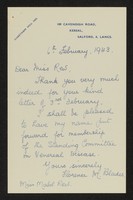 28 CAVENDISH ROAD,
KERSAL,
SALFORD, 7, LANCS.
6th February, 1943.
Dear Miss Rae,
Thank you very much
indeed for your kind
letter of 3rd February.
I shall be pleased
to have my name put
forward for membership
of the Standing Committee
on Memorial Release
Yours sincerely
Florence M.
Miss Mabel Rae.